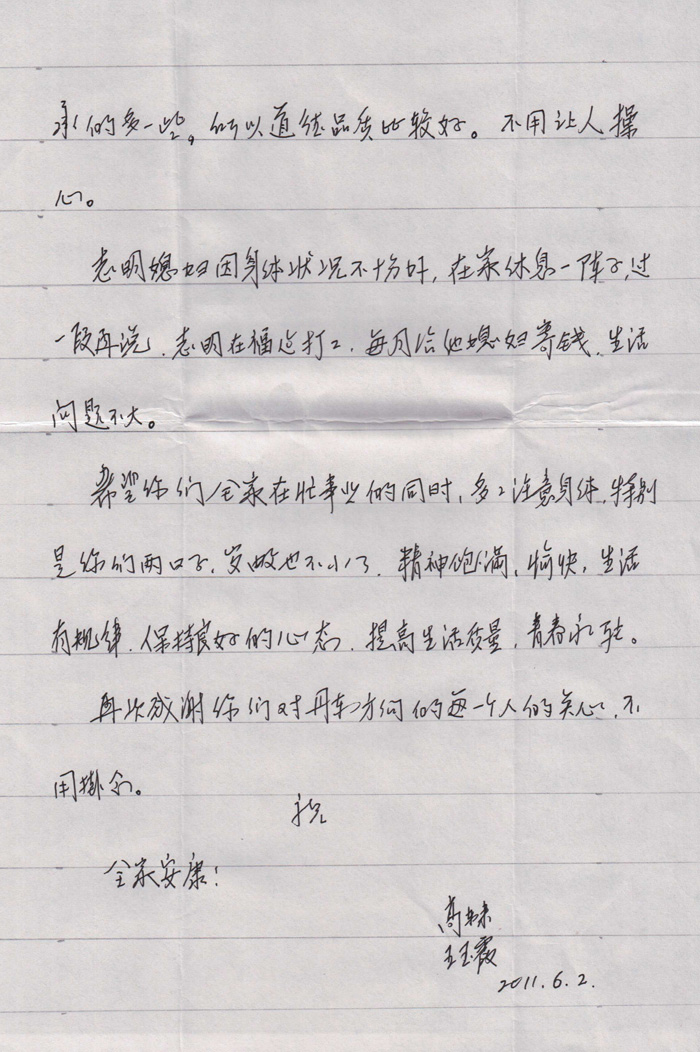 承的多一些，所以道德品质比较好。不用让人操
心。
志明媳妇因身体状况不十分好，在家休息一阵子，过
一段再说，志明在福建打工，每月给他媳妇寄钱，生活
问题不大。
希望你们全家在忙事业的同时，多多注意身体，特别
是你们两口子，岁数也不小了，精神饱满，愉快，生活
有规律，保持良好的心态，提高生活质量，青春永驻。
再次感谢你们对丹东方向的每一个人的关心，不
用掛念。
祝
全家安康！
王玉霞
2011.6.2.